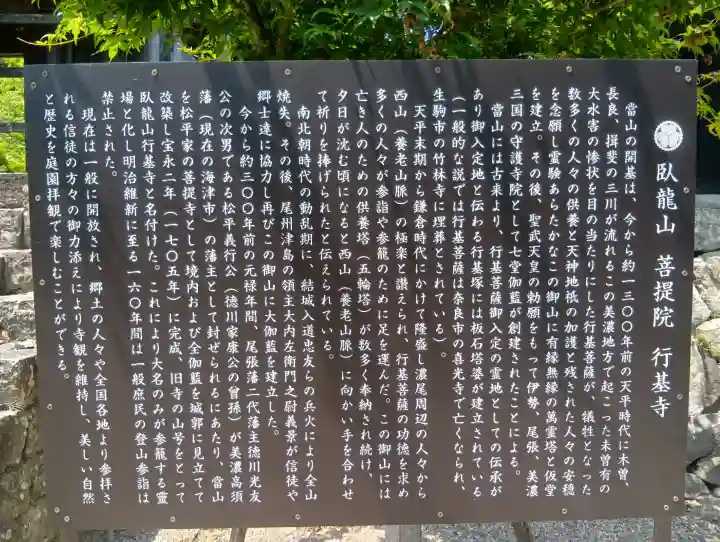 臥龍山 菩提院 行基寺
當山の開基は、今から約一三〇〇年前の天平時代に木曽、
長良、揖斐の三川が流れるこの美濃地方で起こった未曽有の
大水害の惨状を目の当たりにした行基菩薩が、犠牲となった
数多くの人々の供養と天神地祇の加護と残された人々の安穏
を念願し霊験あらたかなこの御山に有縁無縁の萬霊塔と仮堂
を建立。その後、聖武天皇の勅願をもって伊勢、尾張、美濃
三国の守護寺院として七堂伽藍が創建されたことによる。
當山には古来より、行基菩薩御入定の霊地としての伝承が
あり御入定地と伝わる行基塚には板石塔婆が建立されている
(一般的な説では行基菩薩は奈良市の喜光寺で亡くなられ、
生駒市の竹林寺に埋葬とされている)。
天平末期から鎌倉時代にかけて隆盛し濃尾周辺の人々から
西山(養老山脈)の極楽と讃えられ、行基菩薩の功徳を求め
多くの人々が参詣や参籠のために足を運んだ。この御山には
亡き人のための供養塔(五輪塔)が数多く奉納され続け、
夕日が沈む頃になると西山(養老山脈)に向かい手を合わせ
て祈りを捧げられたと伝えられている。
南北朝時代の動乱期に、結城入道忠友らの兵火により全山
焼失。その後、尾州津島の領主大内左衛門之尉義景が信徒や
郷士達に協力し再びこの御山に大伽藍を建立した。
今から約三〇〇年前の元禄年間、尾張藩二代藩主徳川光友
公の次男である松平義行公(徳川家康公の曾孫)が美濃高須
藩(現在の海津市)の藩主として封ぜられるにあたり、當山
を松平家の菩提寺として境内および全伽藍を城郭に見立てて
改築し宝永二年(一七〇五年)に完成、旧寺の山号をとって
臥龍山行基寺と名付けた。これにより大名のみが参籠する霊
場と化し明治維新に至る一六〇年間は一般庶民の登山参詣は
禁止された。
現在は一般に開放され、郷土の人々や全国各地より参拝さ
れる信徒の方々の御力添えにより寺観を維持し、美しい自然
と歴史を庭園拝観で楽しむことができる。